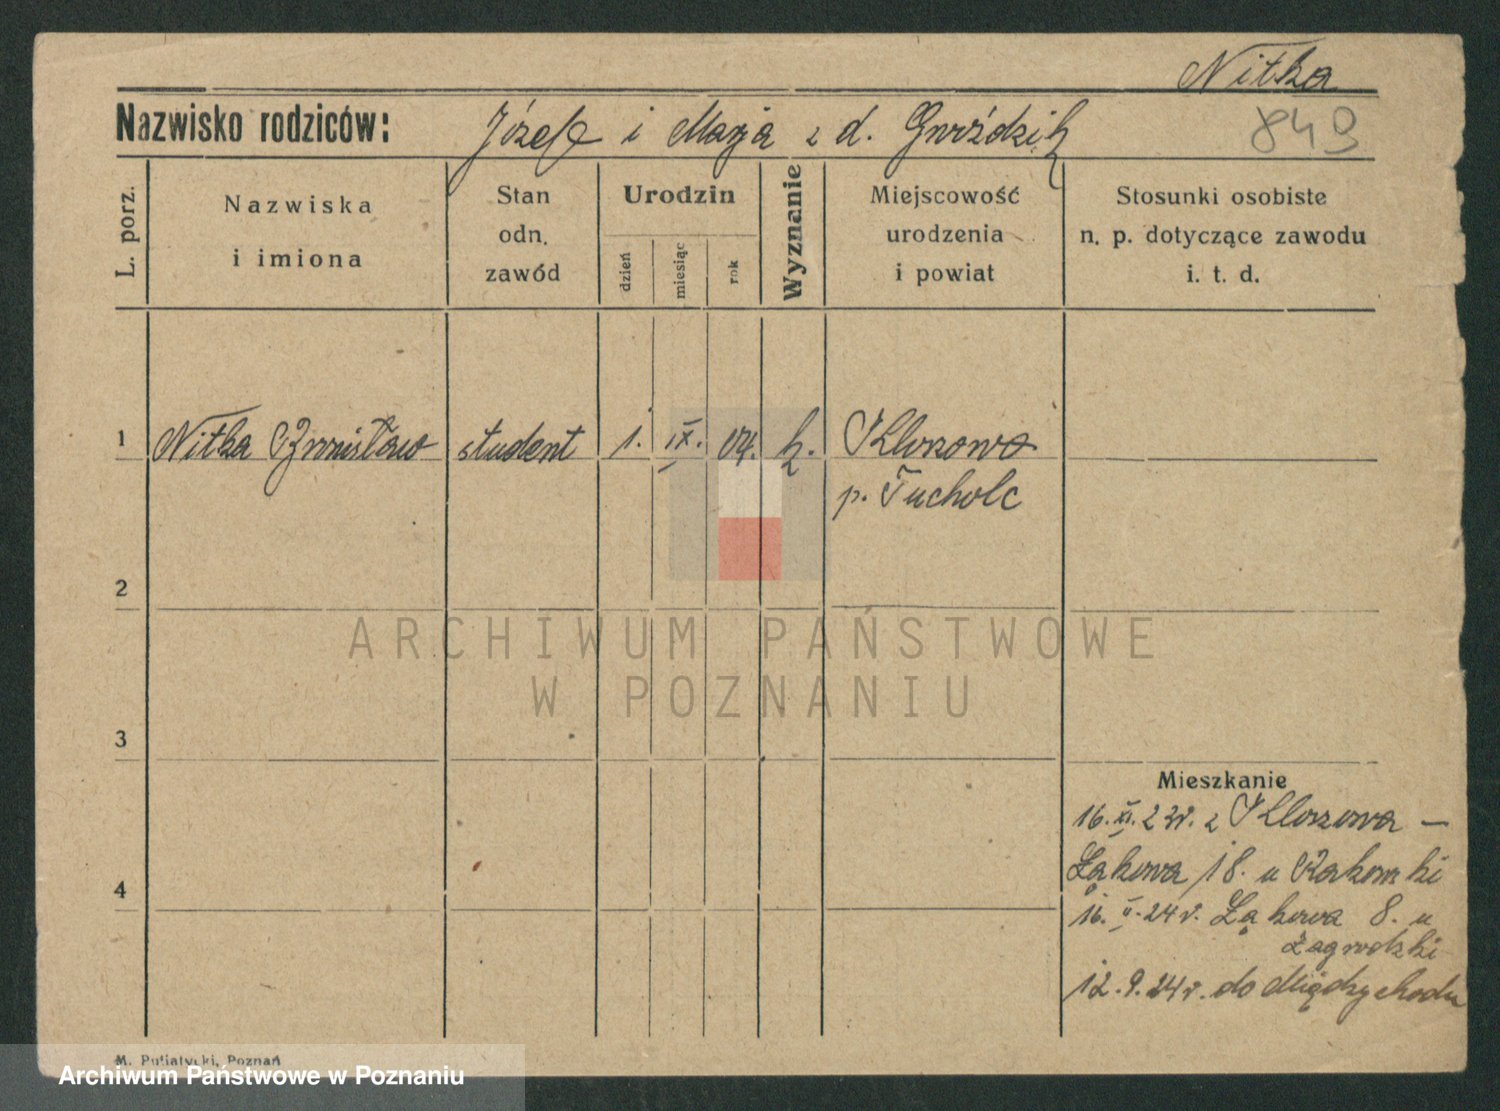 Nitka
Nazwisko rodziców: Józef i Marja z d. Gwóździk 849
L. porz.
Nazwiska
i imiona
Stan
odn.
zawód
Urodzin
dzień
miesiąc
rok
Wyznanie
Miejscowość
urodzenia
i powiat
Stosunki osobiste
n. p. dotyczące zawodu
i. t. d.
1 Nitka Bronisław student 1. IX. 04. k. Klonowo
p. Tucholc
2
ARCHIWUM PAŃSTWOWE
W POZNANIU
3
Mieszkanie
16. XI. 23r. z Klonowa —
Łąkowa 18. u Rakowski
4
16. II. 24r. Łąkowa 8. u
Zagrodzki
12. 9. 24r. do Międzychodu
M. Putiatycki, Poznań
Archiwum Państwowe w Poznaniu